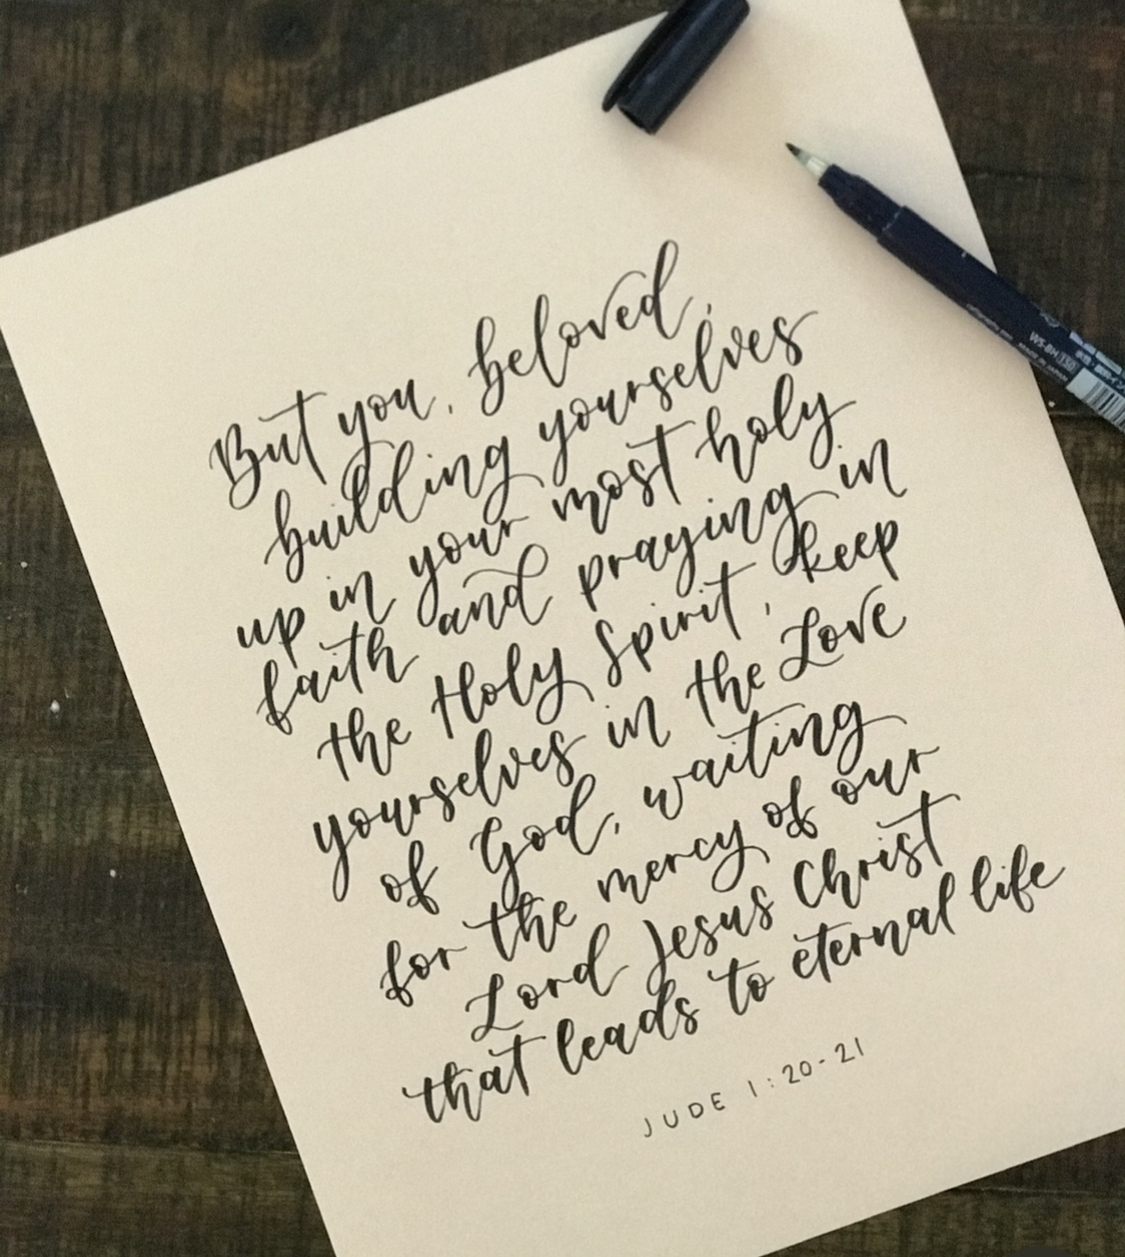 But you, beloved,
building yourselves
up in your most holy
faith and praying in
the Holy Spirit, keep
yourselves in the Love
of God, waiting
for the mercy of our
Lord Jesus Christ
that leads to eternal life
JUDE 1:20-21
WS-BH 150
MADE IN JAPAN